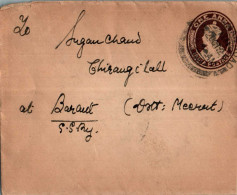 To
Sugan Chand
Chirangi Lall
at Baraut (Distt: Meerut)
S.S.Ry.
ONE ANNA